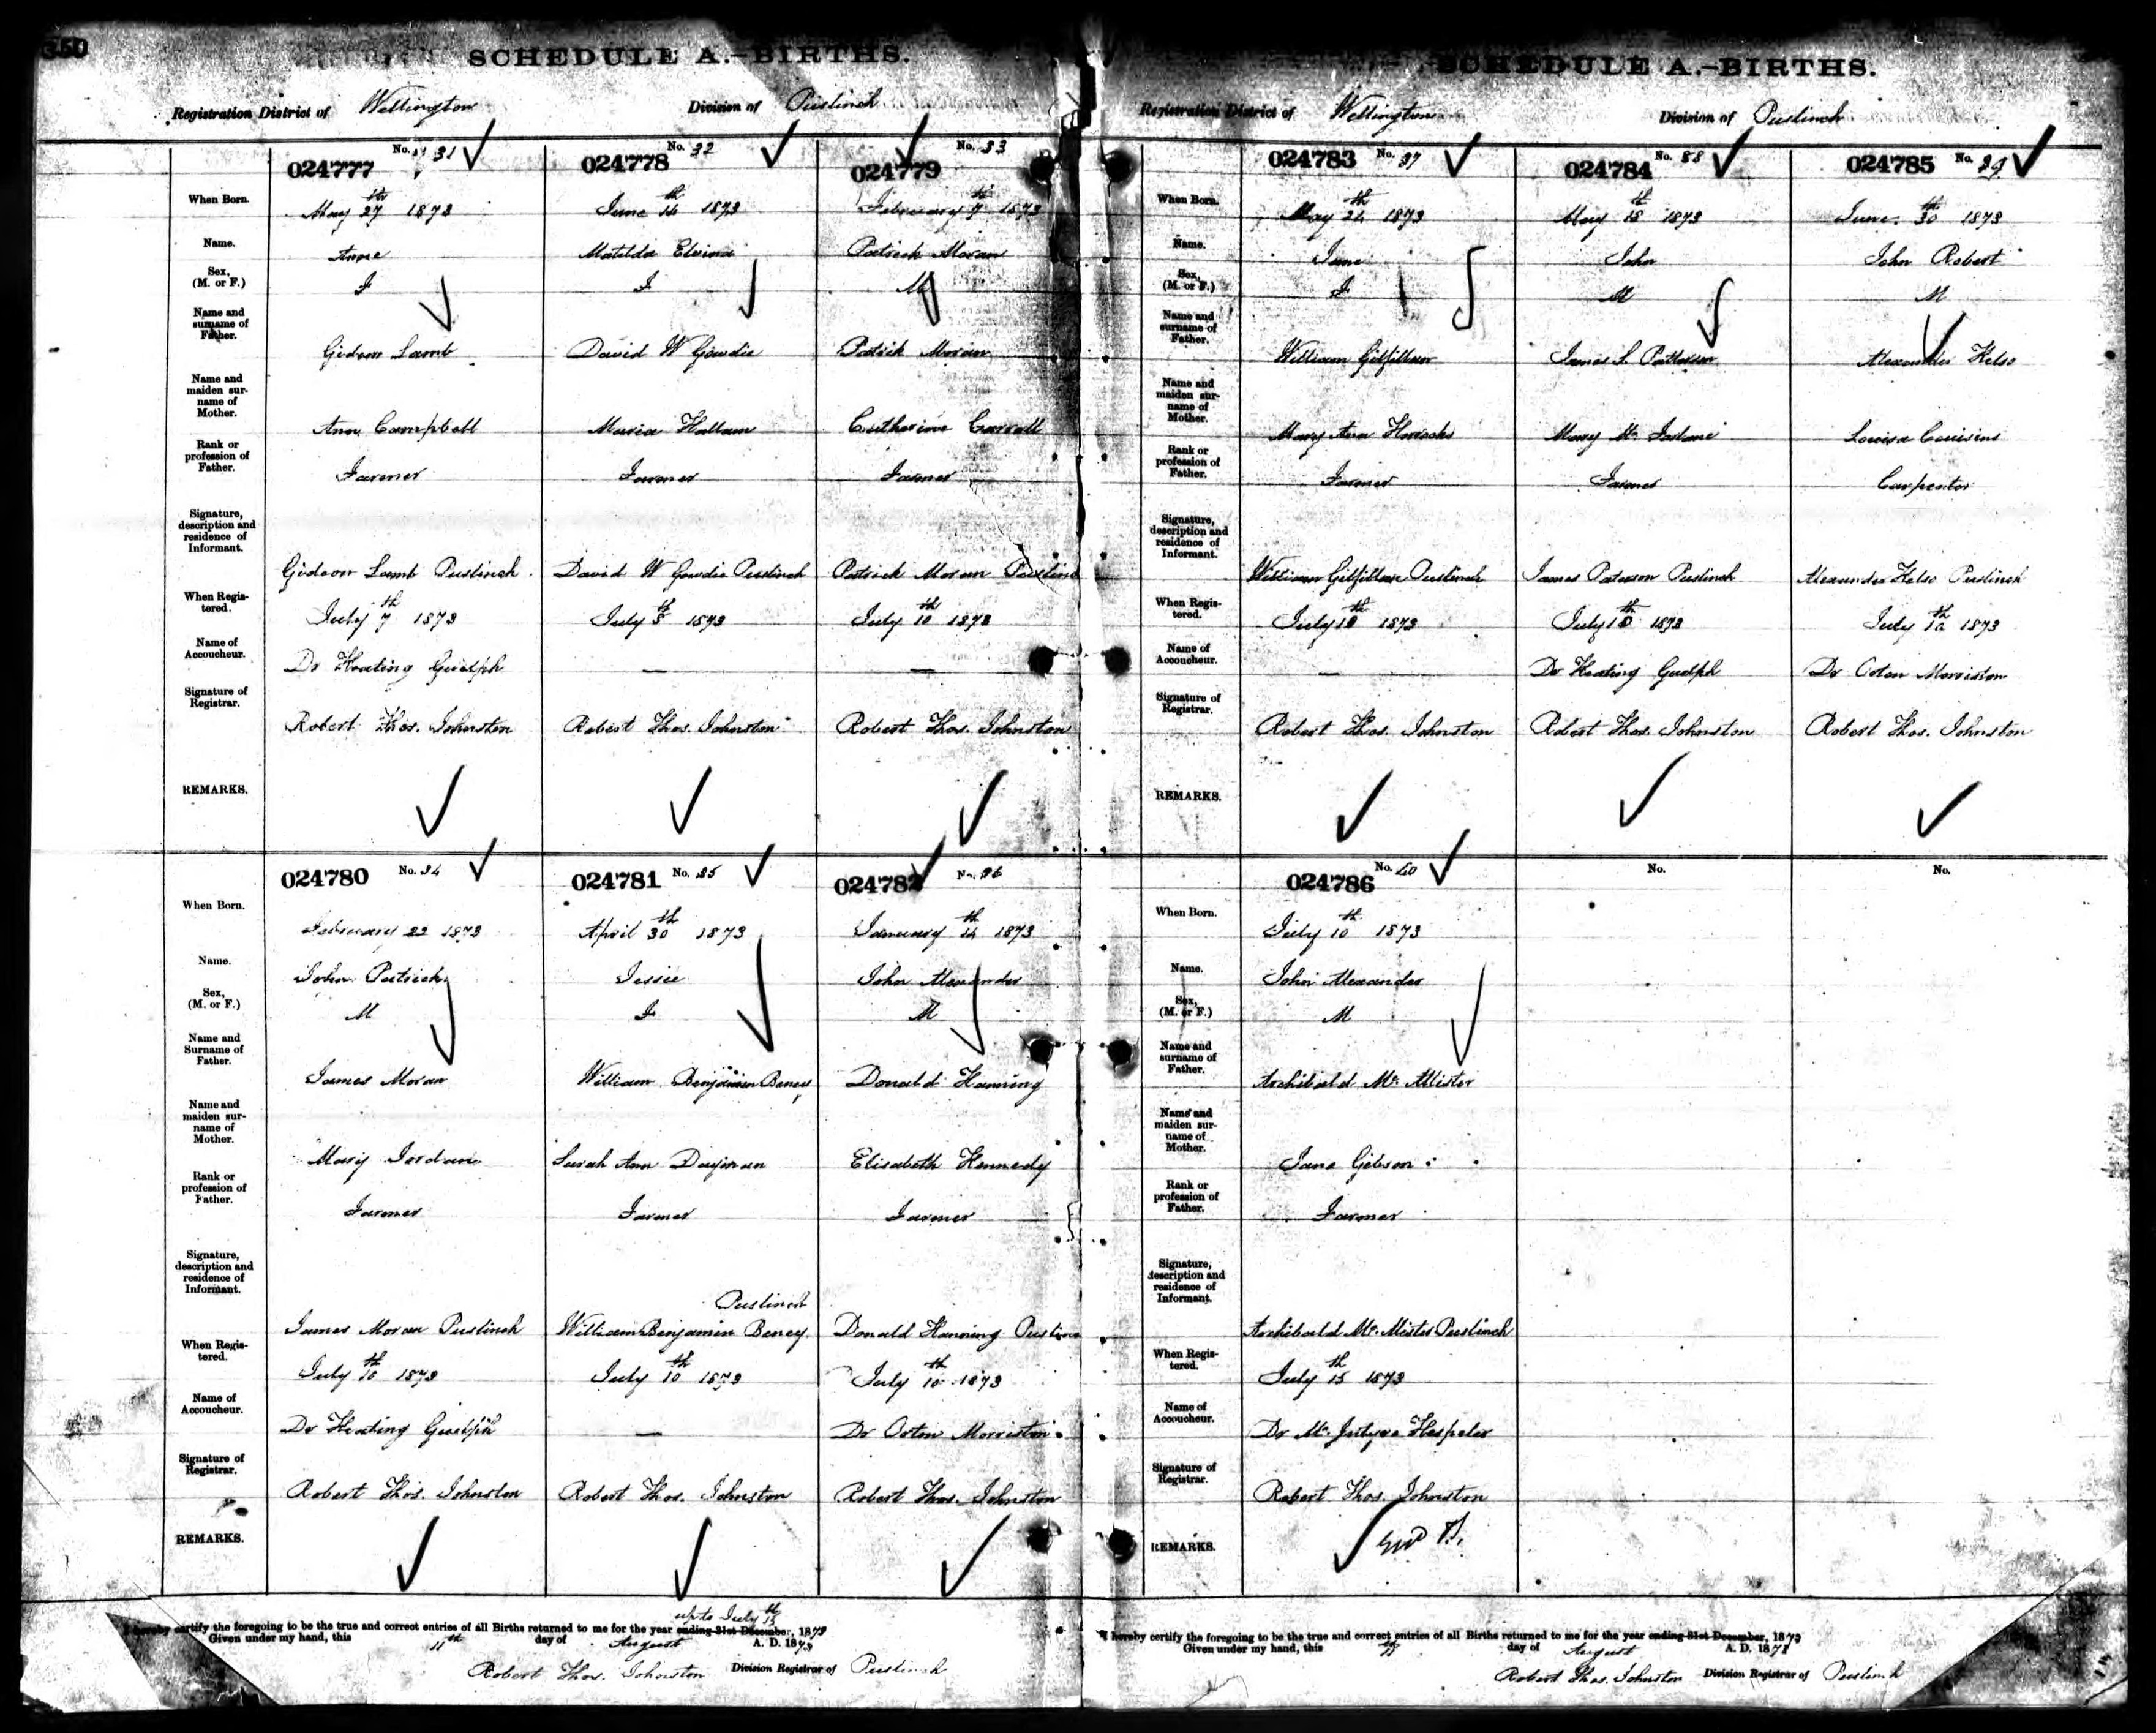 350
SCHEDULE A.-BIRTHS.
Registration District of Wellington Division of Puslinch
024777 No. 31
When Born. May 27th 1873
Name. Anne
Sex, (M. or F.) F
Name and surname of Father. Gideon Lamb
Name and maiden surname of Mother. Ann Campbell
Rank or profession of Father. Farmer
Signature, description and residence of Informant. Gideon Lamb Puslinch
When Registered. July 7th 1873
Name of Accoucheur. Dr Keating Guelph
Signature of Registrar. Robert Thos. Johnston
REMARKS.
024778 No. 32
June 14th 1873
Matilda Elvina
F
David W Gowdie
Maria Hallam
Farmer
David W Gowdie Puslinch
July 8th 1873
—
Robert Thos. Johnston
024779 No. 33
February 9th 1873
Patrick Moran
M
Patrick Moran
Catherine Carroll
Farmer
Patrick Moran Puslinch
July 10th 1873
—
Robert Thos. Johnston
024780 No. 34
When Born. February 22 1873
Name. John Patrick
Sex, (M. or F.) M
Name and Surname of Father. James Moran
Name and maiden surname of Mother. Mary Jordan
Rank or profession of Father. Farmer
Signature, description and residence of Informant. James Moran Puslinch
When Registered. July 10th 1873
Name of Accoucheur. Dr Keating Guelph
Signature of Registrar. Robert Thos. Johnston
REMARKS.
024781 No. 35
April 30th 1873
Jessie
F
William Benjamin Beney
Sarah Ann Dayman
Farmer
Puslinch
William Benjamin Beney
July 10th 1873
—
Robert Thos. Johnston
024782 No. 36
January 14th 1873
John Alexander
M
Donald Hanning
Elisabeth Kennedy
Farmer
Donald Hanning Puslinch
July 10th 1873
Dr Orton Morriston
Robert Thos. Johnston
up to July 15th
I hereby certify the foregoing to be the true and correct entries of all Births returned to me for the year ending 31st December, 1873
Given under my hand, this 11th day of August A. D. 1873
Robert Thos. Johnston Division Registrar of Puslinch
SCHEDULE A.-BIRTHS.
Registration District of Wellington Division of Puslinch
024783 No. 37
When Born. May 24th 1873
Name. Jane
Sex, (M. or F.) F
Name and surname of Father. William Gilfillan
Name and maiden surname of Mother. Mary Ann Horrocks
Rank or profession of Father. Farmer
Signature, description and residence of Informant. William Gilfillan Puslinch
When Registered. July 10th 1873
Name of Accoucheur. —
Signature of Registrar. Robert Thos. Johnston
REMARKS.
024784 No. 38
May 18th 1873
John
M
James L Patterson
Mary Mc
Farmer
James Paterson Puslinch
July 10th 1873
Dr Keating Guelph
Robert Thos. Johnston
024785 No. 39
June 30th 1873
John Robert
M
Alexander Kelso
Louisa Cousins
Carpenter
Alexander Kelso Puslinch
July 10th 1873
Dr Orton Morriston
Robert Thos. Johnston
024786 No. 40
When Born. July 10th 1873
Name. John Alexander
Sex, (M. or F.) M
Name and surname of Father. Archibald Mc Allister
Name and maiden surname of Mother. Jane Gibson
Rank or profession of Father. Farmer
Signature, description and residence of Informant. Archibald Mc Alister Puslinch
When Registered. July 15th 1873
Name of Accoucheur. Dr Mc Intyre Hespeler
Signature of Registrar. Robert Thos. Johnston
REMARKS.
No.
No.
I hereby certify the foregoing to be the true and correct entries of all Births returned to me for the year ending 31st December, 1873
Given under my hand, this day of August A. D. 1873
Robert Thos. Johnston Division Registrar of Puslinch